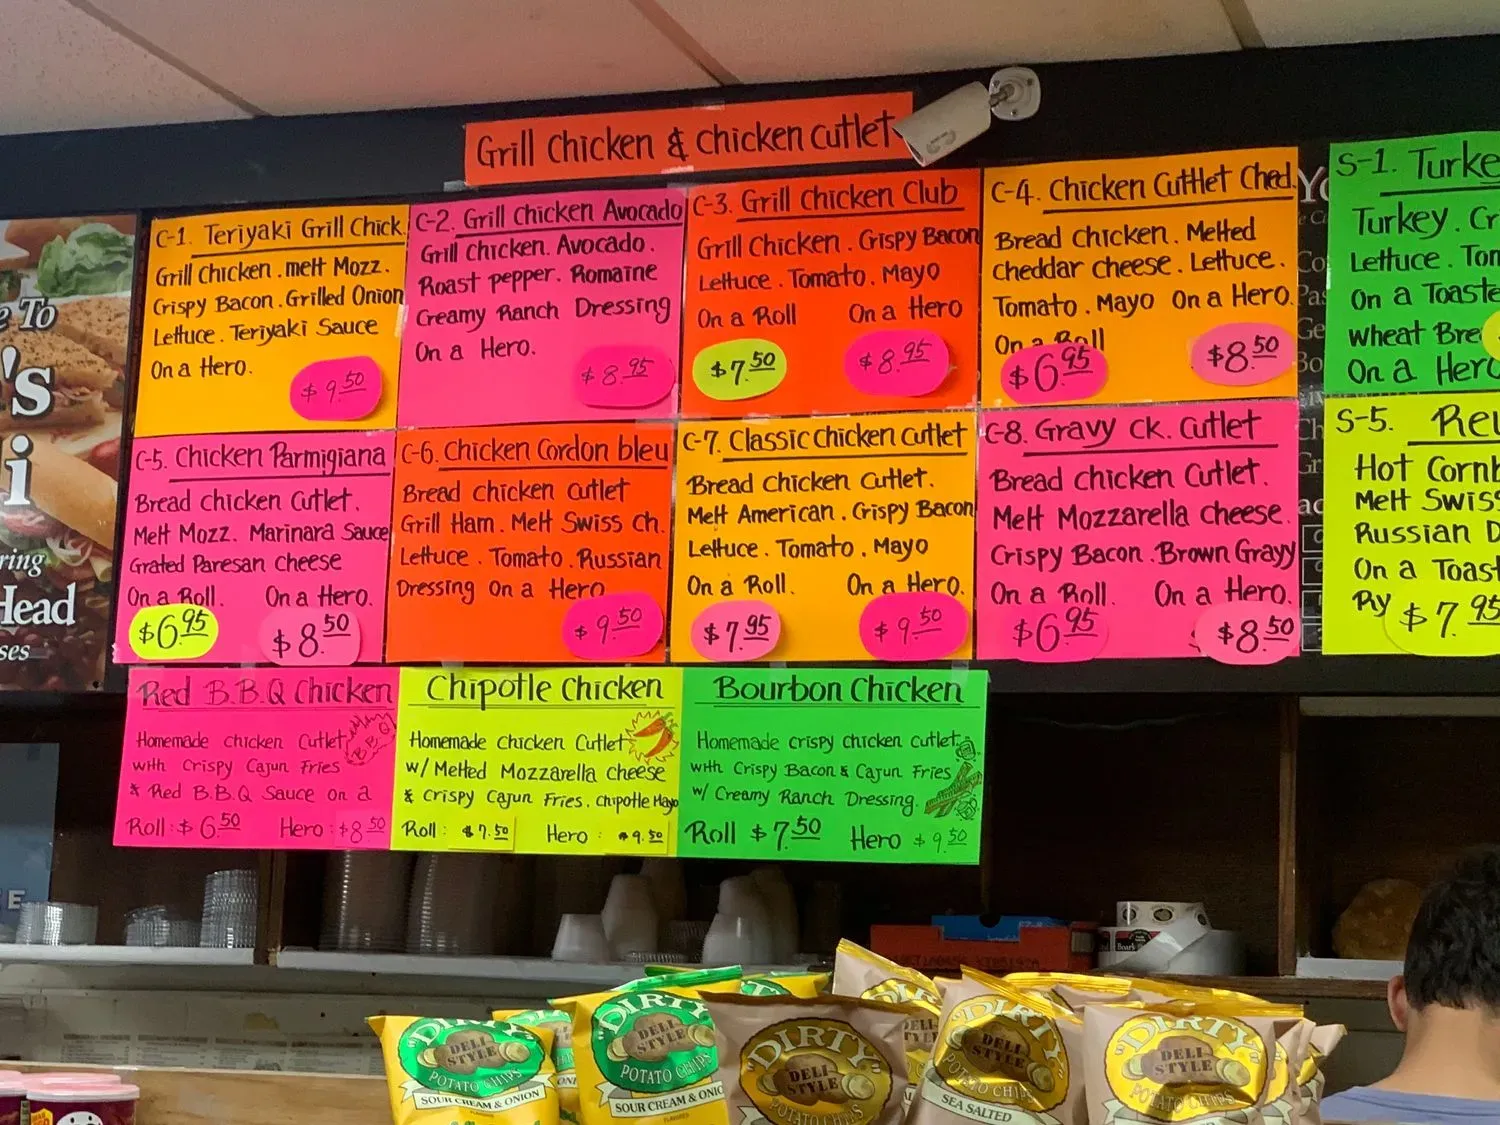 Grill chicken & chicken cutlet
C-1. Teriyaki Grill Chick.
Grill Chicken . melt Mozz.
Crispy Bacon . Grilled Onion
Lettuce . Teriyaki Sauce
On a Hero.
$ 9.50
C-2. Grill Chicken Avocado
Grill Chicken. Avocado.
Roast pepper. Romaine
Creamy Ranch Dressing
On a Hero.
$ 8.95
C-3. Grill Chicken Club
Grill Chicken . Grispy Bacon
Lettuce . Tomato . Mayo
On a Roll On a Hero
$7.50 $8.95
C-4. Chicken Cuttlet Ched.
Bread Chicken . Melted
Cheddar cheese . Lettuce .
Tomato . Mayo On a Hero.
On a Roll
$6.95 $8.50
C-5. Chicken Parmigiana
Bread chicken Cutlet.
Melt Mozz. Marinara Sauce
Grated Paresan cheese
On a Roll. On a Hero.
$6.95 $8.50
C-6. Chicken Cordon bleu
Bread chicken cutlet
Grill Ham . Melt Swiss ch.
Lettuce . Tomato . Russian
Dressing On a Hero
$ 9.50
C-7. Classic chicken cutlet
Bread Chicken Cutlet.
Melt American . Crispy Bacon
Lettuce . Tomato . Mayo
On a Roll. On a Hero.
$7.95 $9.50
C-8. Gravy ck. Cutlet
Bread Chicken Cutlet.
Melt Mozzarella cheese.
Crispy Bacon . Brown Grayy
On a Roll. On a Hero.
$6.95 $8.50
Red B.B.Q Chicken
Homemade chicken Cutlet
with Crispy Cajun Fries
& Red B.B.Q Sauce on a
Roll : $ 6.50 Hero : $8.50
B.B.Q
Chipotle Chicken
Homemade Chicken Cutlet
w/ Melted Mozzarella cheese
& Crispy Cajun Fries. chipotle Mayo
Roll : $ 7.50 Hero : $ 9.50
Bourbon Chicken
Homemade crispy chicken cutlet
with Crispy Bacon & Cajun Fries
w/ Creamy Ranch Dressing.
Roll $7.50 Hero $ 9.50
S-1. Turke
Turkey . Cr
Lettuce . Tom
On a Toaste
wheat Brea
On a Hero
S-5. Reu
Hot Cornb
Melt Swiss
Russian D
On a Toast
Ry $7.95
e To
's
i
ring
Head
ses
"DIRTY"
DELI-STYLE
POTATO CHIPS
SOUR CREAM & ONION
"DIRTY"
DELI-STYLE
POTATO CHIPS
SOUR CREAM & ONIO
"DIRTY"
DELI-STYLE
POTATO CHIPS
"DIRTY"
DELI-STYLE
POTATO CHIPS
SEA SALTED
"DIRTY"
DELI-STYLE
POTATO CHIPS